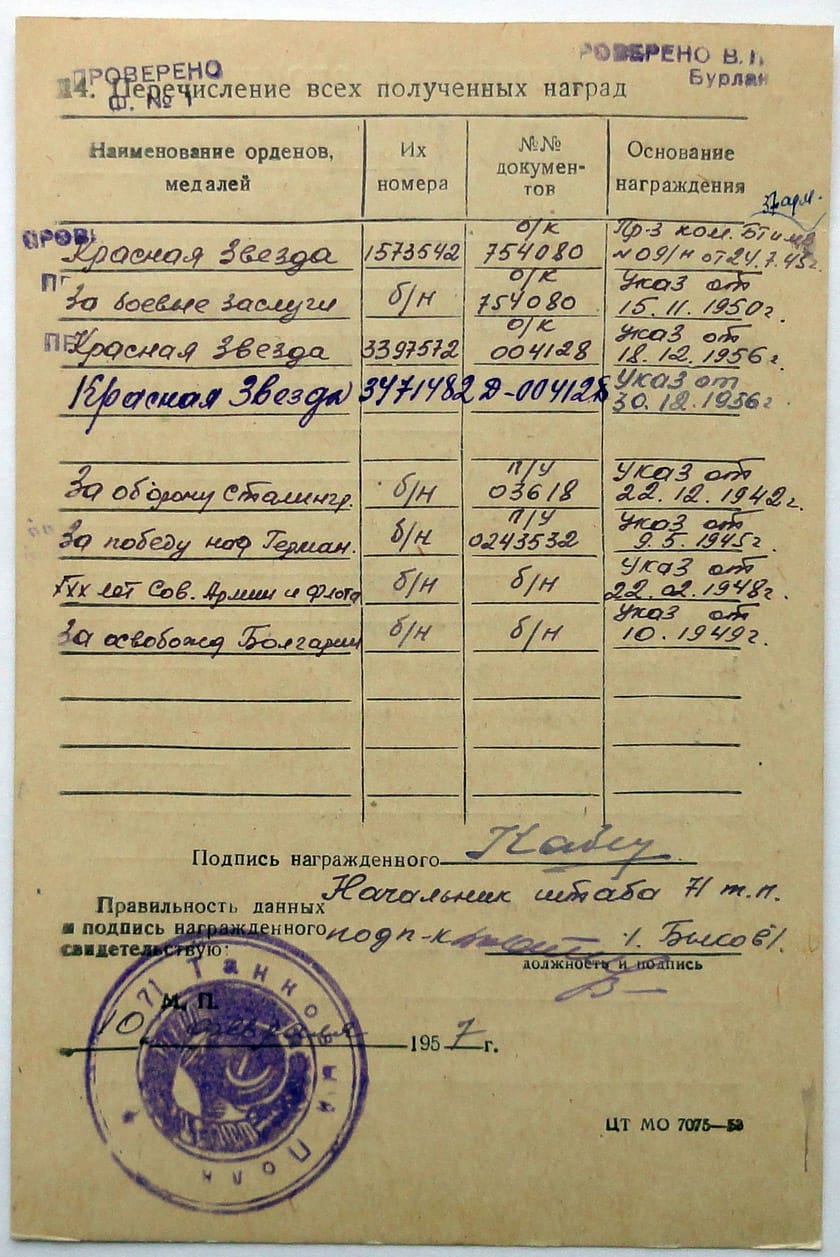 ПРОВЕРЕНО
Ф. № 1
ПРОВЕРЕНО В.
Бурлан
14. Перечисление всех полученных наград
Наименование орденов, медалей
Их номера
№№ документов
Основание награждения
37 арм.
ПРОВ
Красная Звезда 1573542 о/к 754080 Пр-з ком. БТиМВ №09/н от 24.7.45г.
За боевые заслуги б/н о/к 754080 Указ от 15.11.1950г.
Красная Звезда 3397572 о/к 004128 Указ от 18.12.1956г.
Красная Звезда 3471482 Д-004128 Указ от 30.12.1956г
За оборону Сталингр. б/н п/у 03618 Указ от 22.12.1942г.
За победу над Герман. б/н п/у 0243532 Указ от 9.5.1945г.
XXX лет Сов. Армии и флота б/н б/н Указ от 22.02.1948г.
За освобожд Болгарии б/н б/н Указ от 10.1949г.
Подпись награжденного
Правильность данных
и подпись награжденного
свидетельствую:
Начальник штаба 71 т.п.
подп-к /. Быков /.
должность и подпись
М. П.
10 февраля 1957 г.
71 Танковый Полк
ЦТ МО 7075—53